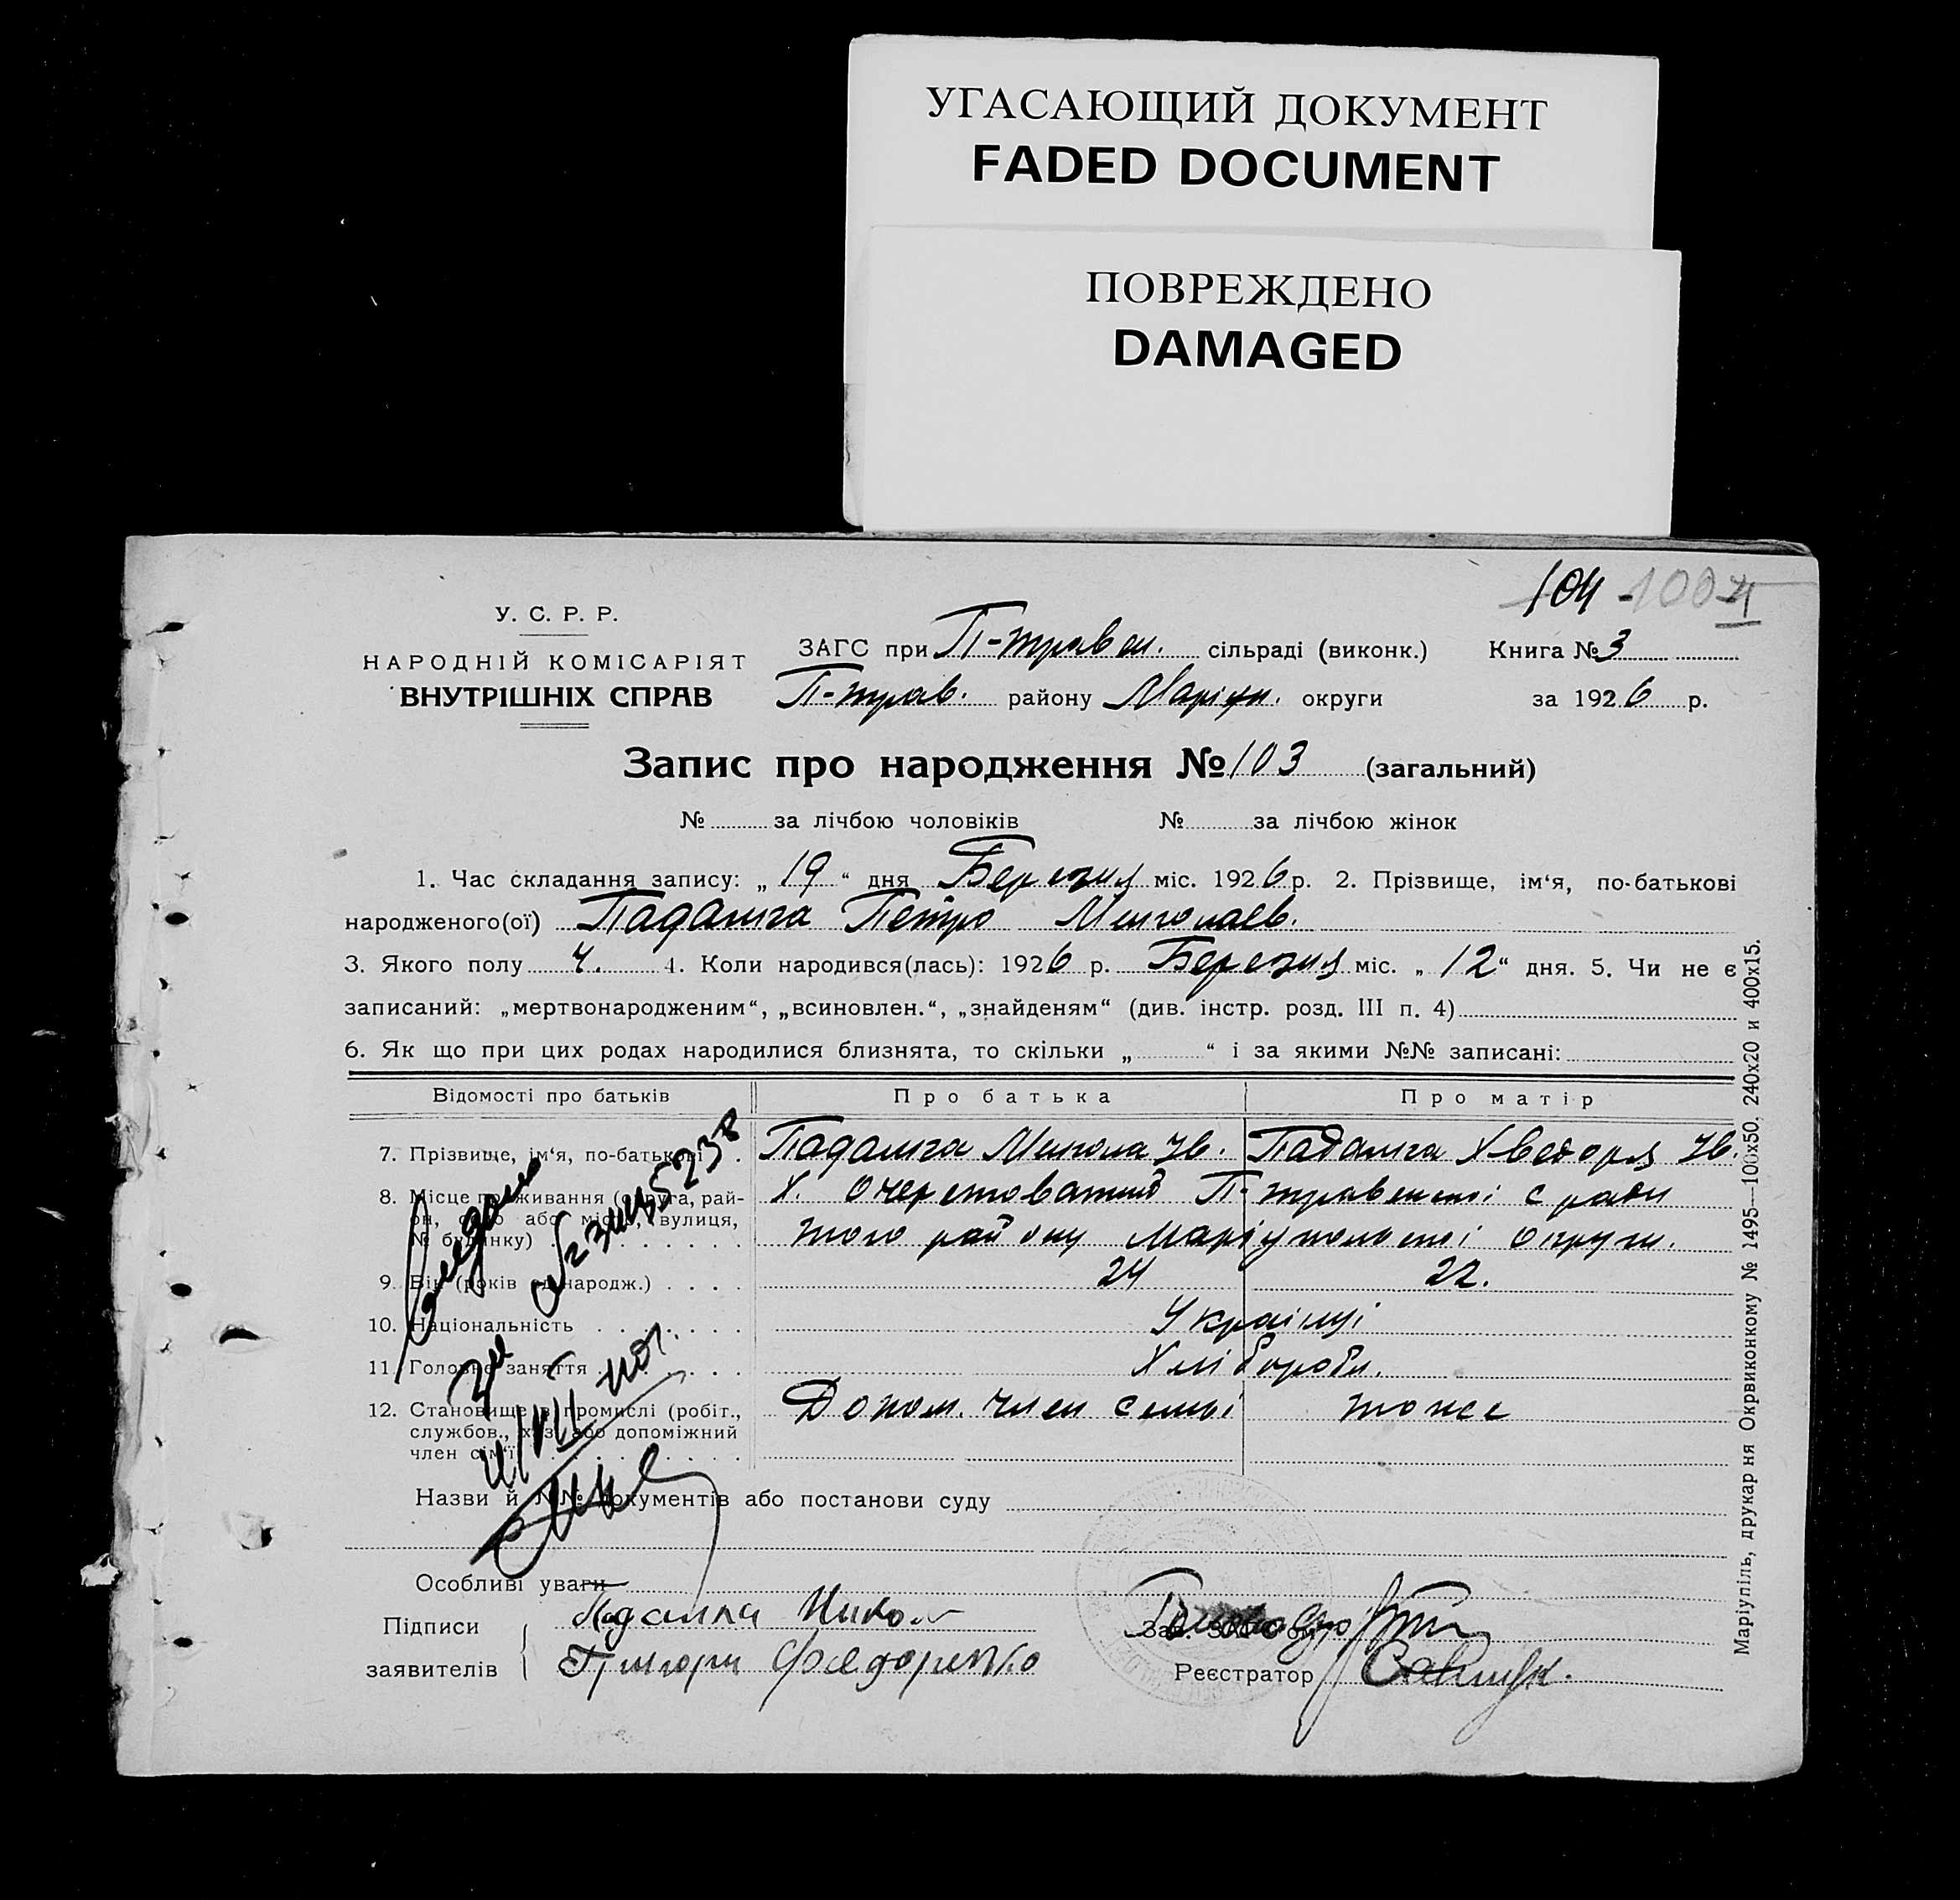 УГАСАЮЩИЙ ДОКУМЕНТ
FADED DOCUMENT
ПОВРЕЖДЕНО
DAMAGED
104 - 100 4
У. С. Р. Р.
НАРОДНІЙ КОМІСАРІЯТ
ВНУТРІШНІХ СПРАВ
ЗАГС при П-травен. сільраді (виконк.) Книга № 3
П-трав. району Маріуп. округи за 1926 р.
Запис про народження № 103 (загальний)
№ за лічбою чоловіків № за лічбою жінок
1. Час складання запису: „ 19 “ дня Березня міс. 1926 р. 2. Прізвище, ім‘я, по-батькові
народженого(ої) Падалка Петро Миколаєв.
3. Якого полу ч. 4. Коли народився(лась): 1926 р. Березня міс. „ 12 “ дня. 5. Чи не є
записаний: „мертвонародженим“, „всиновлен.“, „знайденям“ (див. інстр. розд. III п. 4)
6. Як що при цих родах народилися близнята, то скільки „ “ і за якими №№ записані:
Відомості про батьків Про батька Про матір
7. Прізвище, ім‘я, по-батькові Падалка Микола Ів. Падалка Хведора Ів.
8. Місце проживання (округа, рай-
он, село або місто, вулиця,
№ будинку)
х. Очеретоватий П-травенської с ради
того району Маріупольської округи.
9. Вік (років од народж.) 24 22.
10. Національність Українці
11. Головне заняття Хлібороби.
12. Становище в промислі (робіт.,
службов., хаз. або допоміжний
член сім‘ї
Допом. член семьі тоже
Назви й №№ документів або постанови суду
Особливі уваги
Підписи Падалка Никол
заявителів Григори Федоренко
Зав. ЗАГС‘ом
Реєстратор Савчук.
Маріупіль, друкарня Окрвиконкому № 1495—100х50. 240х20 и 400х15.